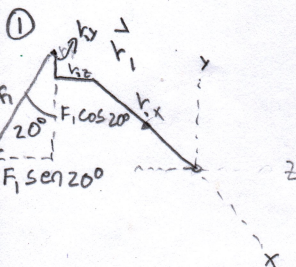 ①
r₁y
r⃗₁
r₁z
F₁
F₁ cos 20°
20°
r₁x
y
F₁ sen 20°
z
x